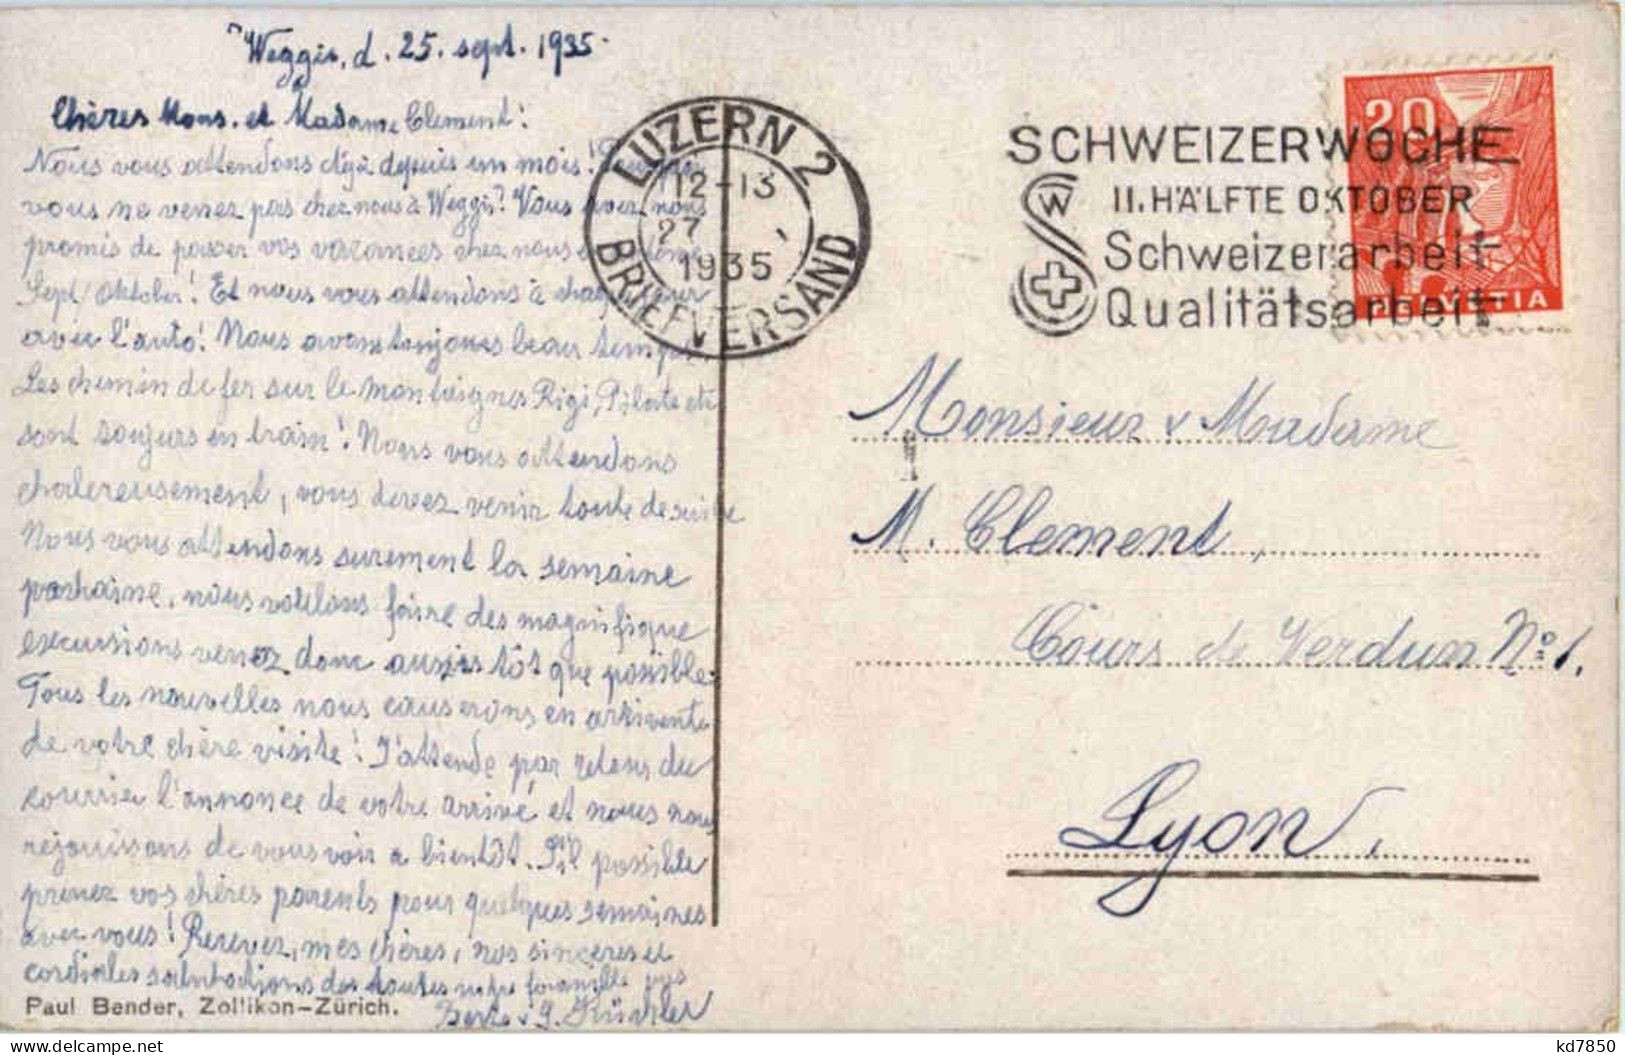 Weggis, d. 25. sept. 1935.
Chères Mons. et Madame Clement!
Nous vous attendons déjà depuis un mois!
vous ne venez pas chez nous à Weggis? Vous avez nous
promis de passer vos vacances chez nous
Sept/Oktober! Et nous vous attendons à chaque jour
avec l'auto! Nous avons toujours beau temps.
Les chemin de fer sur le montaignes Rigi, Pilate etc
sont toujurs en train! Nous vous attendons
chalereusement, vous devez venir toute de suite
Nous vous attendons surement la semaine
porhaine, nous voulons faire des magnifique
excursions venez donc aussis tôt que possible.
Tous les nouvelles nous causerons en
de votre chère visite! J'attende par retour du
courrier l'annonce de votre arrivé et nous nous
rejouissons de vous voir a bientôt. S'il possible
prenez vos chères parents pour quelques semaines
avec vous! Recevez, mes chères, nos sinceres et
cordiales salutations des toutes notre
Berta u. J. Küchler
Paul Bender, Zollikon-Zürich.
LUZERN 2
12-13
27
1935
BRIEFVERSAND
SCHWEIZERWOCHE
II. HÄLFTE OKTOBER
Schweizerarbeit
Qualitätsarbeit
SW
20
HELVETIA
Monsieur & Madame
M. Clement,
Cours de Verdun No 1.
Lyon.
kd7850